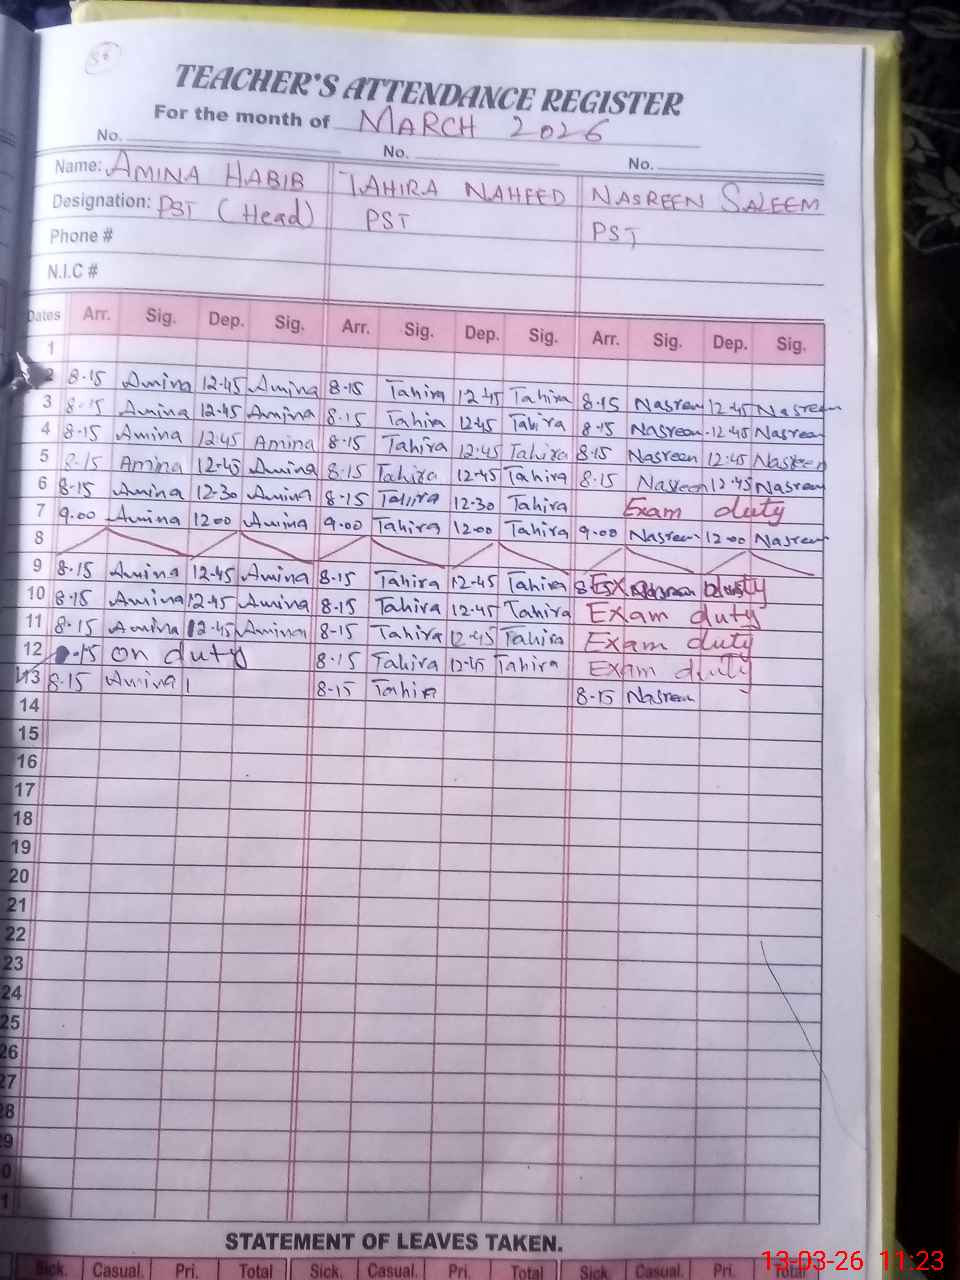 56
TEACHER'S ATTENDANCE REGISTER
For the month of MARCH 2026
No. No. No.
Name: AMINA HABIB TAHIRA NAHEED NASREEN SALEEM
Designation: PST (Head) PST PST
Phone #
N.I.C #
Dates Arr. Sig. Dep. Sig. Arr. Sig. Dep. Sig. Arr. Sig. Dep. Sig.
1
2 8-15 Amina 12-45 Amina 8-15 Tahira 12-45 Tahira 8-15 Nasreen 12-45 Nasreen
3 8-15 Amina 12-45 Amina 8-15 Tahira 12-45 Tahira 8-15 Nasreen 12-45 Nasreen
4 8-15 Amina 12-45 Amina 8-15 Tahira 12-45 Tahira 8-15 Nasreen 12-45 Nasreen
5 8-15 Amina 12-45 Amina 8-15 Tahira 12-45 Tahira 8-15 Nasreen 12-45 Nasreen
6 8-15 Amina 12-30 Amina 8-15 Tahira 12-30 Tahira Exam duty
7 9-00 Amina 12-00 Amina 9-00 Tahira 12-00 Tahira 9-00 Nasreen 12-00 Nasreen
8
9 8-15 Amina 12-45 Amina 8-15 Tahira 12-45 Tahira Exam duty
10 8-15 Amina 12-45 Amina 8-15 Tahira 12-45 Tahira Exam duty
11 8-15 Amina 12-45 Amina 8-15 Tahira 12-45 Tahira Exam duty
12 8-15 on duty 8-15 Tahira 12-45 Tahira Exam duty
13 8-15 Amina 1 8-15 Tahira 8-15 Nasreen
14
15
16
17
18
19
20
21
22
23
24
25
26
27
28
29
0
1
STATEMENT OF LEAVES TAKEN.
Sick. Casual. Pri. Total Sick. Casual. Pri. Total Sick. Casual. Pri. Total
13-03-26 11:23